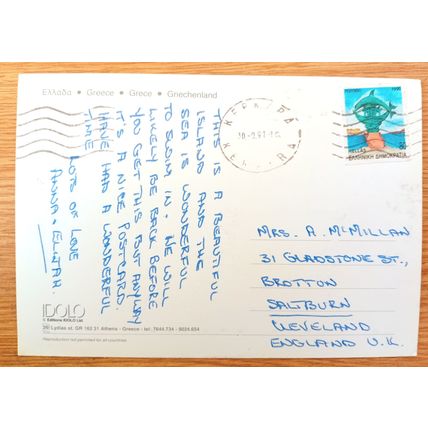 Ελλαδα • Greece • Grece • Griechenland
THIS IS A BEAUTIFUL
ISLAND AND THE
SEA IS WONDERFUL
TO SWIM IN. WE WILL
LIKELY BE BACK BEFORE
YOU GET THIS BUT ANYWAY
IT'S A NICE POSTCARD.
HAVE HAD A WONDERFUL
TIME
LOTS OF LOVE
ANNA + ELIJAH.
ΚΕΡΚΥΡΑ
HELLAS
ΕΛΛΗΝΙΚΗ ΔΗΜΟΚΡΑΤΙΑ
MRS. A. MCMILLAN
31 GLADSTONE ST.,
BROTTON
SALTBURN
CLEVELAND
ENGLAND U.K.
IDOLO
© Editions IDOLO Ltd.
Lydias st. GR 163 31 Athens - Greece - tel. 7644.734 - 9024.654
Reproduction not permited for all countries